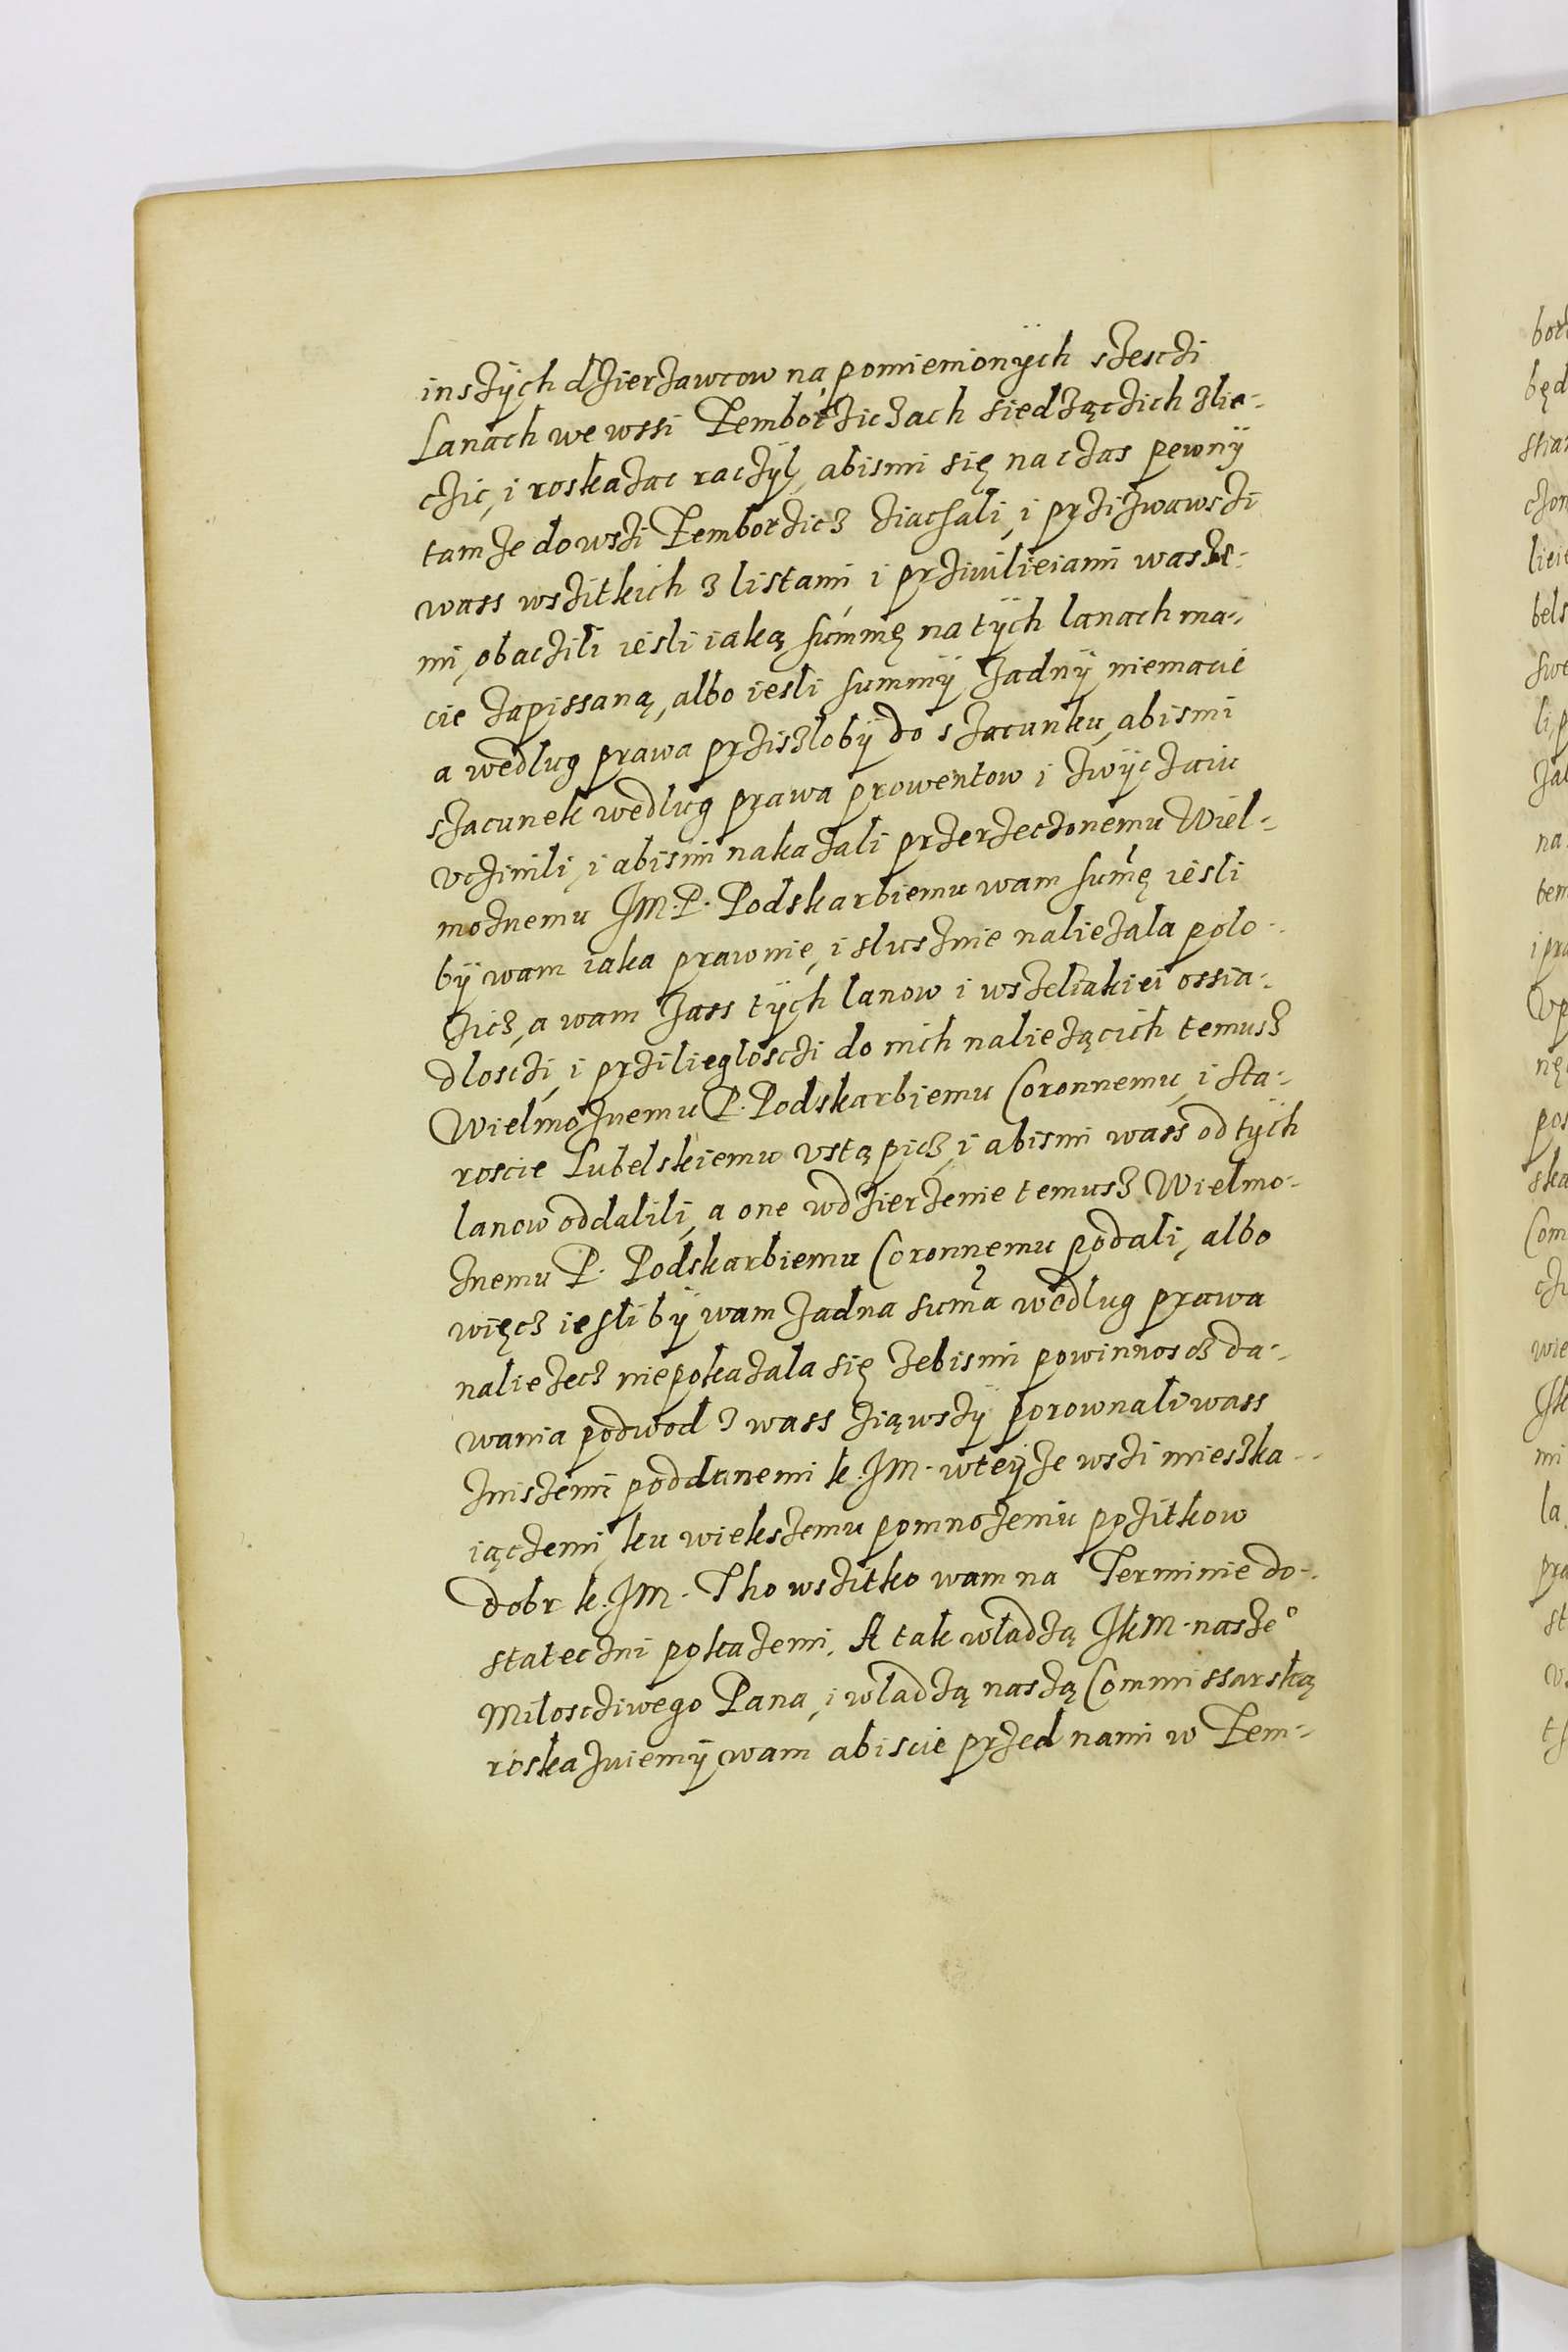 inszÿch dzierzawcow na pomienionÿch szesczi
Lanach we wssi Pemborziczach siedzączich zlie-
czic, i roskazac raczÿl, abismi się na czas pewnÿ
tamze do wszi Pemborzicz ziachali, i przizwawszi
wass wszitkich z listami i prziwilieiami wasze-
mi, obaczili iesli iaką summę na tÿch lanach ma-
cie zapissaną, albo iesli summÿ zadnÿ niemacie
a wedlug prawa prziszlobÿ do szacunku, abismi
szacunek wedlug prawa prowentow i zwÿczaiu
vczinili, i abismi nakazali przerzeczonemu Wiel-
moznemu JM. P. Podskarbiemu wam sumę iesli
bÿ wam iaka prawnie, i slusznie naliezala polo-
zicz, a wam zass tÿch lanow i wszeliakiei ossia-
dlosczi, i prziliegloscżi do nich naliezącich temusz
Wielmoznemu P. Podskarbiemu Coronnemu, i sta-
roscie Lubelskiemu vstąpicz, i abismi wass od tÿch
lanow oddalili, a one wdzierzenie temusz Wielmo-
znemu P. Podskarbiemu Coronnemu podali, albo
więcz iesli bÿ wam zadna suma wedlug prawa
naliezecz niepokazala się zebismi powinnoscz da-
wania podwod z wass ziąwszÿ porownali wass
zniszemi poddanemi k. JM. wteÿze wszi mieszka-
iączemi, ku wiekszemu pomnozeniu pozitkow
dobr k. JM. Tho wszitko wam na Terminie do-
stateczni pokazemi. A tak wladzą JkM. nasze°
Milosciwego Pana, i wladzą naszą Commissarską
roskazuiemÿ wam abiscie przed nami w Pem-